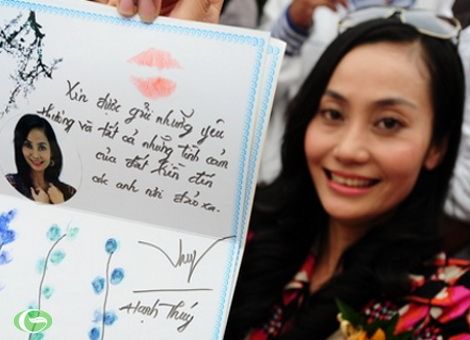 Xin được gửi những yêu
thương và tất cả những tình cảm
của đất liền đến
các anh nơi đảo xa.
Hạnh Thúy